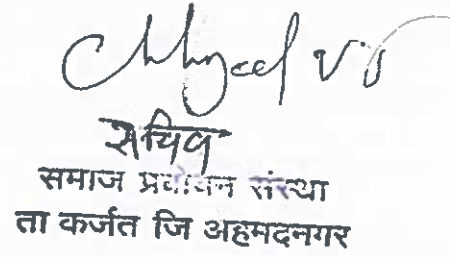 सचिव
समाज प्रबोधन संस्था
ता कर्जत जि अहमदनगर